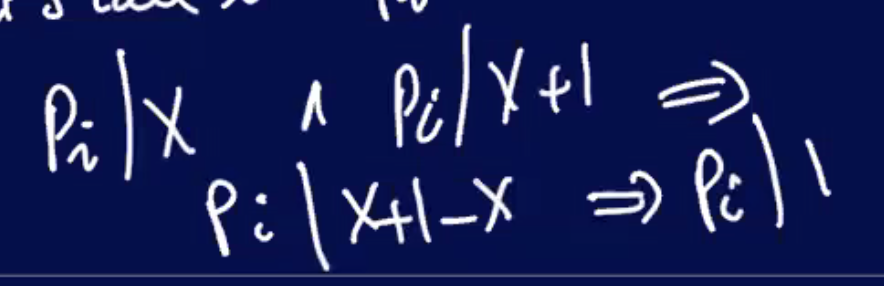 Pi | X ∧ Pi | X+1 ⇒
Pi | X+1-X ⇒ Pi | 1